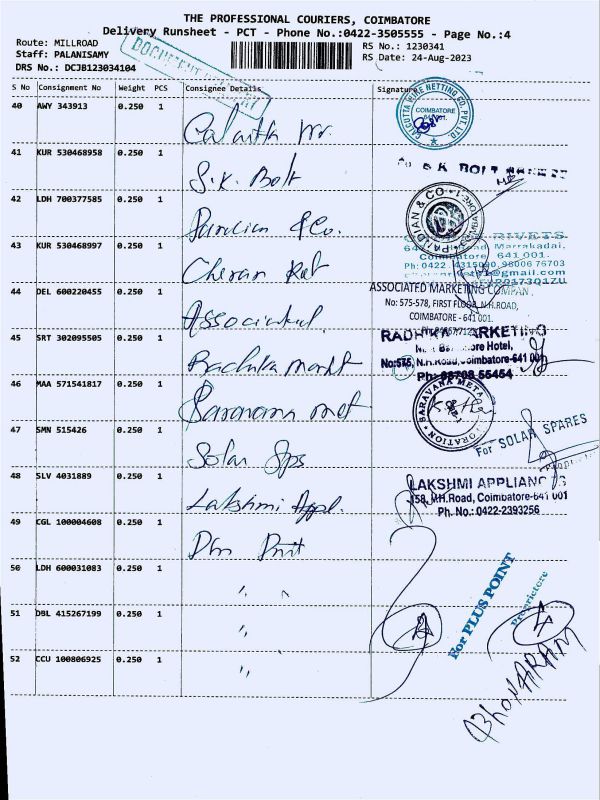 THE PROFESSIONAL COURIERS, COIMBATORE
Delivery Runsheet - PCT - Phone No.:0422-3505555 - Page No.:4
Route: MILLROAD
Staff: PALANISAMY
DRS No.: DCJB123034104
RS No.: 1230341
RS Date: 24-Aug-2023
S No Consignment No Weight PCS Consignee Details Signature
40 AWY 343913 0.250 1
CALCUTTA WIRE NETTING CO. PVT. LTD
COIMBATORE
41 KUR 530468958 0.250 1 S.K. Bolt
S K BOLT
42 LDH 700377585 0.250 1 & Co.
43 KUR 530468997 0.250 1 Cheran
RIVETS
Marrakadai,
Coimbatore 641 001.
44 DEL 600220455 0.250 1
ASSOCIATED MARKETING COMPANY
No: 575-578, FIRST FLOOR, N.H.ROAD,
COIMBATORE - 641 001.
45 SRT 302095505 0.250 1
Hotel,
No:575, N.H.Road, Coimbatore-641 001
Ph: 98708 55454
46 MAA 571541817 0.250 1
SARAVANA METAL CORPORATION
47 SMN 515426 0.250 1 Solar Sps
For SOLAR SPARES
48 SLV 4031889 0.250 1 Lakshmi Appl.
LAKSHMI APPLIANCES
158, M.H.Road, Coimbatore-641 001
Ph. No.: 0422-2393256
49 CGL 100004608 0.250 1
50 LDH 600031083 0.250 1 "
51 DBL 415267199 0.250 1 "
For PLUS POINT
Proprietore
52 CCU 100806925 0.250 1 "